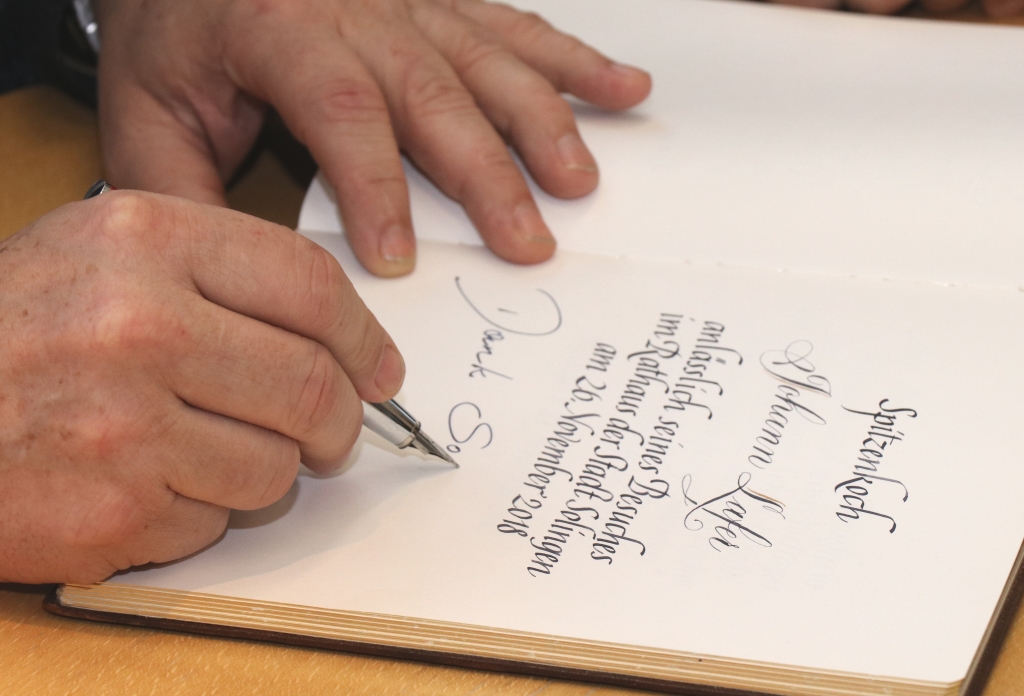 Spitzenkoch
Johann Lafer
anlässlich seines Besuches
im Rathaus der Stadt Solingen
am 26. November 2018
Dank So